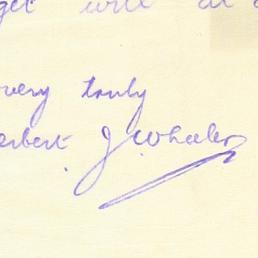 get will at
very truly
erbert. J. Wheeler